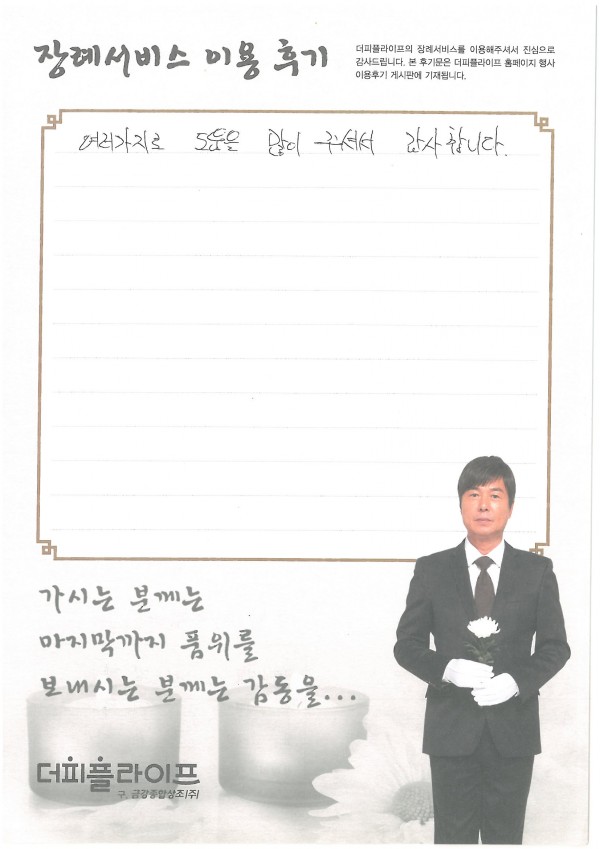 장례서비스 이용 후기
더피플라이프의 장례서비스를 이용해주셔서 진심으로
감사드립니다. 본 후기문은 더피플라이프 홈페이지 행사
이용후기 게시판에 기재됩니다.
여러가지로 도움을 많이 주셔서 감사합니다.
가시는 분께는
마지막까지 품위를
보내시는 분께는 감동을...
더피플라이프
구. 금강종합상조(주)